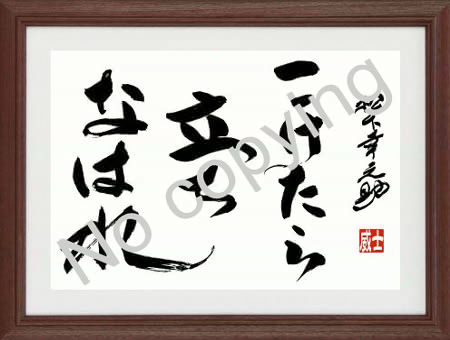 松下幸之助
士威
こけたら
立ち
なはれ
No copying